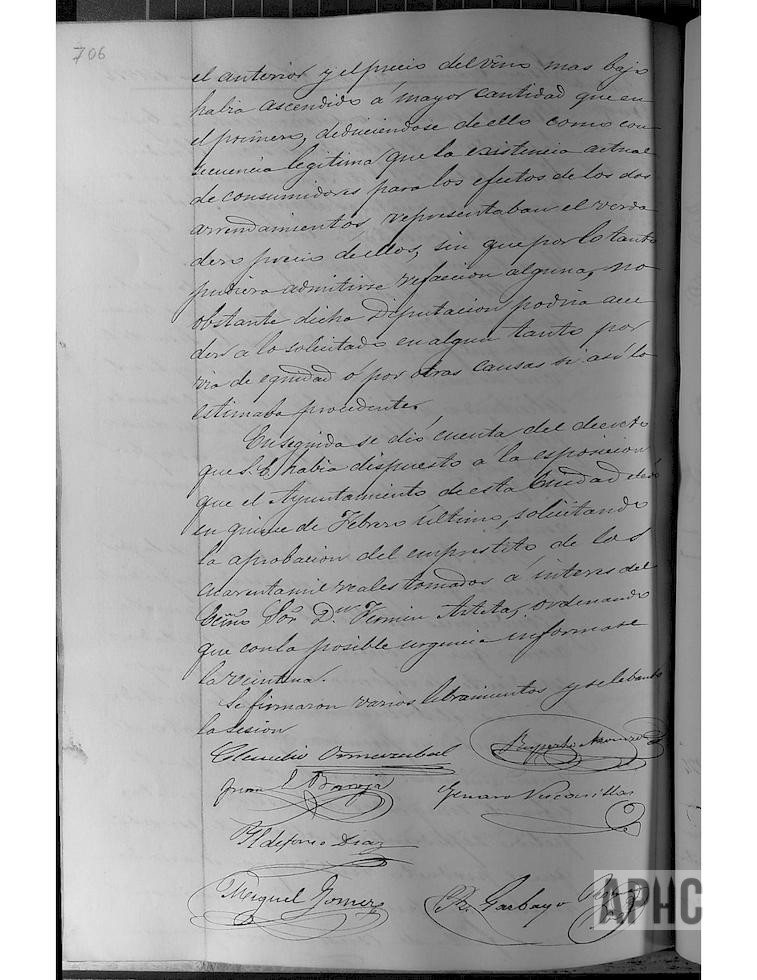 706
el anterior y el precio del vino mas bajo
habia ascendido á mayor cantidad que en
el primero, deduciendose de ello como con
secuencia legitima que la existencia actual
de consumidores para los efectos de los dos
arrendamientos representaban el verda
dero precio de ellos, sin que por lo tanto
pudiera admitirse refaccion alguna, no
obstante dicha Diputacion podria acce
der á lo solicitado en algun tanto por
via de equidad ó por otras causas si así lo
estimaba procedente.
Enseguida se dió cuenta del decreto
que S. E. habia dispuesto á la esposicion
que el Ayuntamiento de esta Ciudad elevó
en quince de Febrero último, solicitando
la aprobacion del emprestito de los
cuarenta mil reales tomados á interes del
Ecmo Sor Dn Fermin Arteta, ordenando
que con la posible urgencia informase
la veintena.
Se firmaron varios libramientos y se lebantó
la sesion
Claudio Ormazabal
Ruperto
Juan L Baroja
Genaro
Yldefonso Diaz
Miguel Gomez
Garbayo
APHC